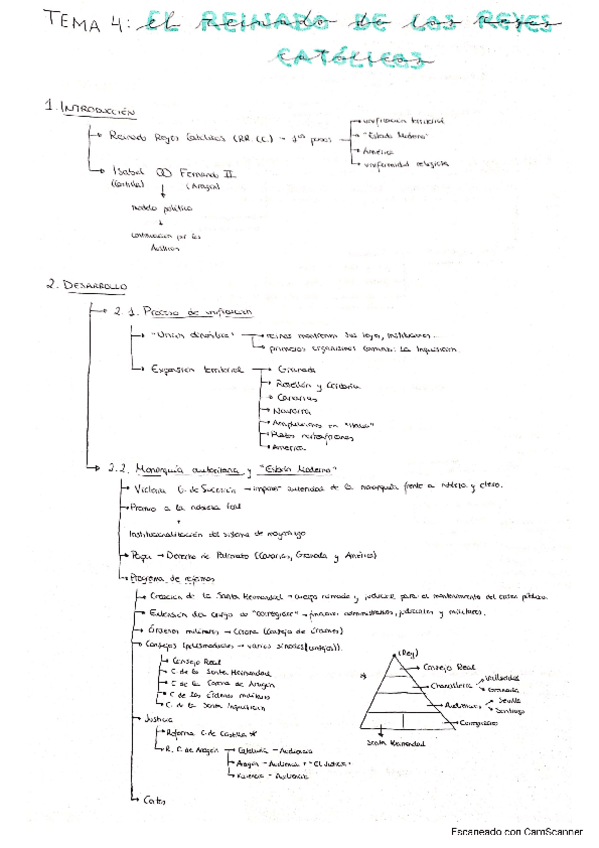 TEMA 4: EL REINADO DE LOS REYES
CATÓLICOS
1. INTRODUCCIÓN
Reinado Reyes Católicos (RR.CC.) → 1os pasos
unificación territorial
"Estado Moderno"
América
uniformidad religiosa
Isabel Fernando II
(Castilla) (Aragón)
modelo político
continuación por los
Austrias
2. DESARROLLO
2.1. Proceso de unificación
"Unión dinástica"
reinos mantienen sus leyes, instituciones.
primeros organismos comunes: la Inquisición
Expansión territorial
Granada
Rosellón y Cerdaña
Canarias
Navarra
Ampliaciones en "Italia"
Plazas norteafricanas
América
2.2. Monarquía autoritaria y "Estado Moderno"
Victoria G. de Sucesión → autoridad de la monarquía frente a nobleza y clero.
Premio a la nobleza leal
Institucionalización del sistema de mayorazgo
Papa → Derecho de Patronato (Canarias, Granada y América)
Programa de reformas
Creación de la Santa Hermandad → cuerpo armado y judicial para el mantenimiento del orden público.
Extensión del cargo de "corregidor" → funciones administrativas, judiciales y militares.
Órdenes militares → Corona (Consejo de Órdenes)
Consejos (polisinodial) → varios sínodos (consejos)
Consejo Real
C. de la Santa Hermandad
C. de la Corona de Aragón
C. de las Órdenes militares
C. de la Santa Inquisición
(Rey)
*
Consejo Real
Chancillería
Valladolid
Granada
Audiencias
Sevilla
Santiago
Corregidores
Santa Hermandad
Justicia
Reforma C. de Castilla *
R. C. de Aragón
Cataluña – Audiencia
Aragón – Audiencia + "El Justicia"
Valencia – Audiencia
Cortes
Escaneado con CamScanner